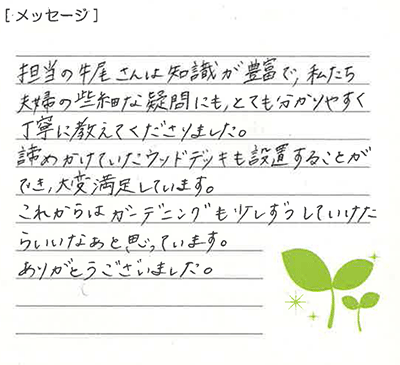 [メッセージ]
担当の牛尾さんは知識が豊富で、私たち
夫婦の些細な疑問にも、とても分かりやすく
丁寧に教えてくださりました。
諦めかけていたウッドデッキも設置することが
でき、大変満足しています。
これからはガーデニングも少しずつしていけた
らいいなあと思っています。
ありがとうございました。